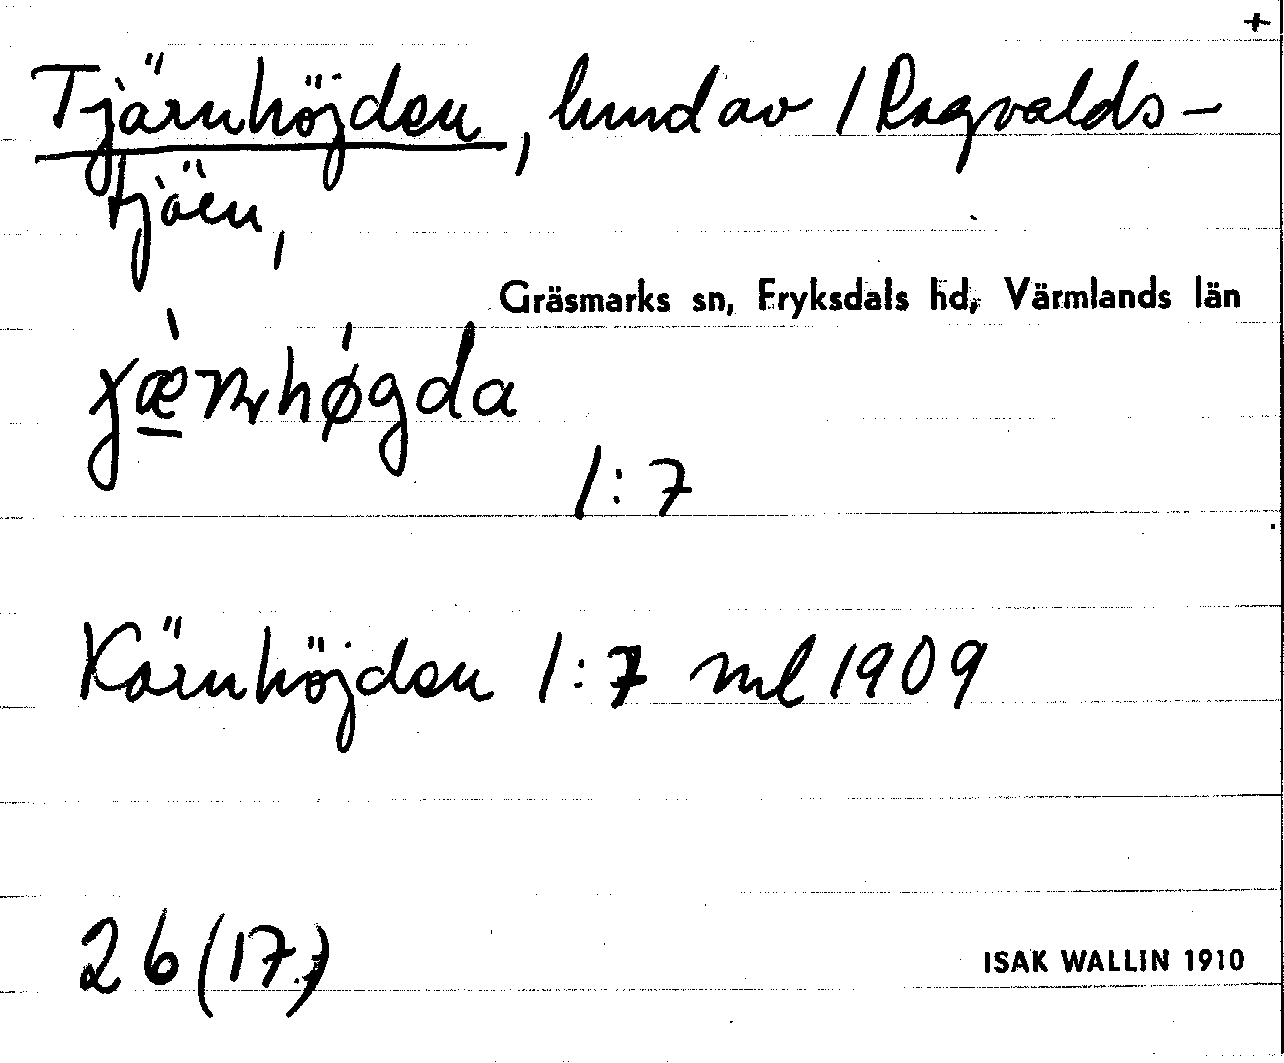 +
Tjärnhöjden, hmd av 1 Ragvalds-
tjäen,
Gräsmarks sn, Fryksdals hd, Värmlands län
1:7
Kärnhöjden 1:7 ml 1909
26 (17.)
ISAK WALLIN 1910